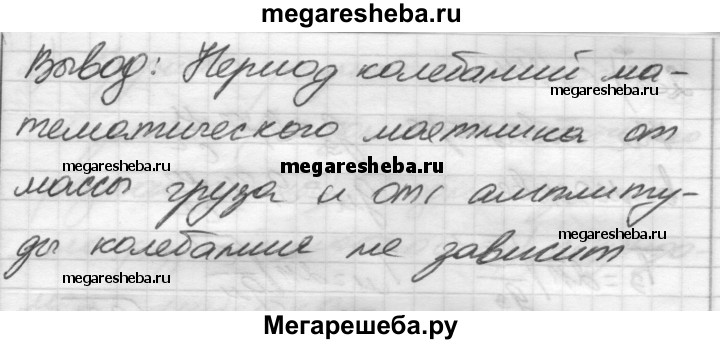 megaresheba.ru
Вывод: Период колебаний ма-
megaresheba.ru
тематического маятника от
megaresheba.ru
megaresheba.ru
массы груза и от амплиту-
megaresheba.ru
ды колебания не зависит
megaresheba.ru
Мегарешеба.ру